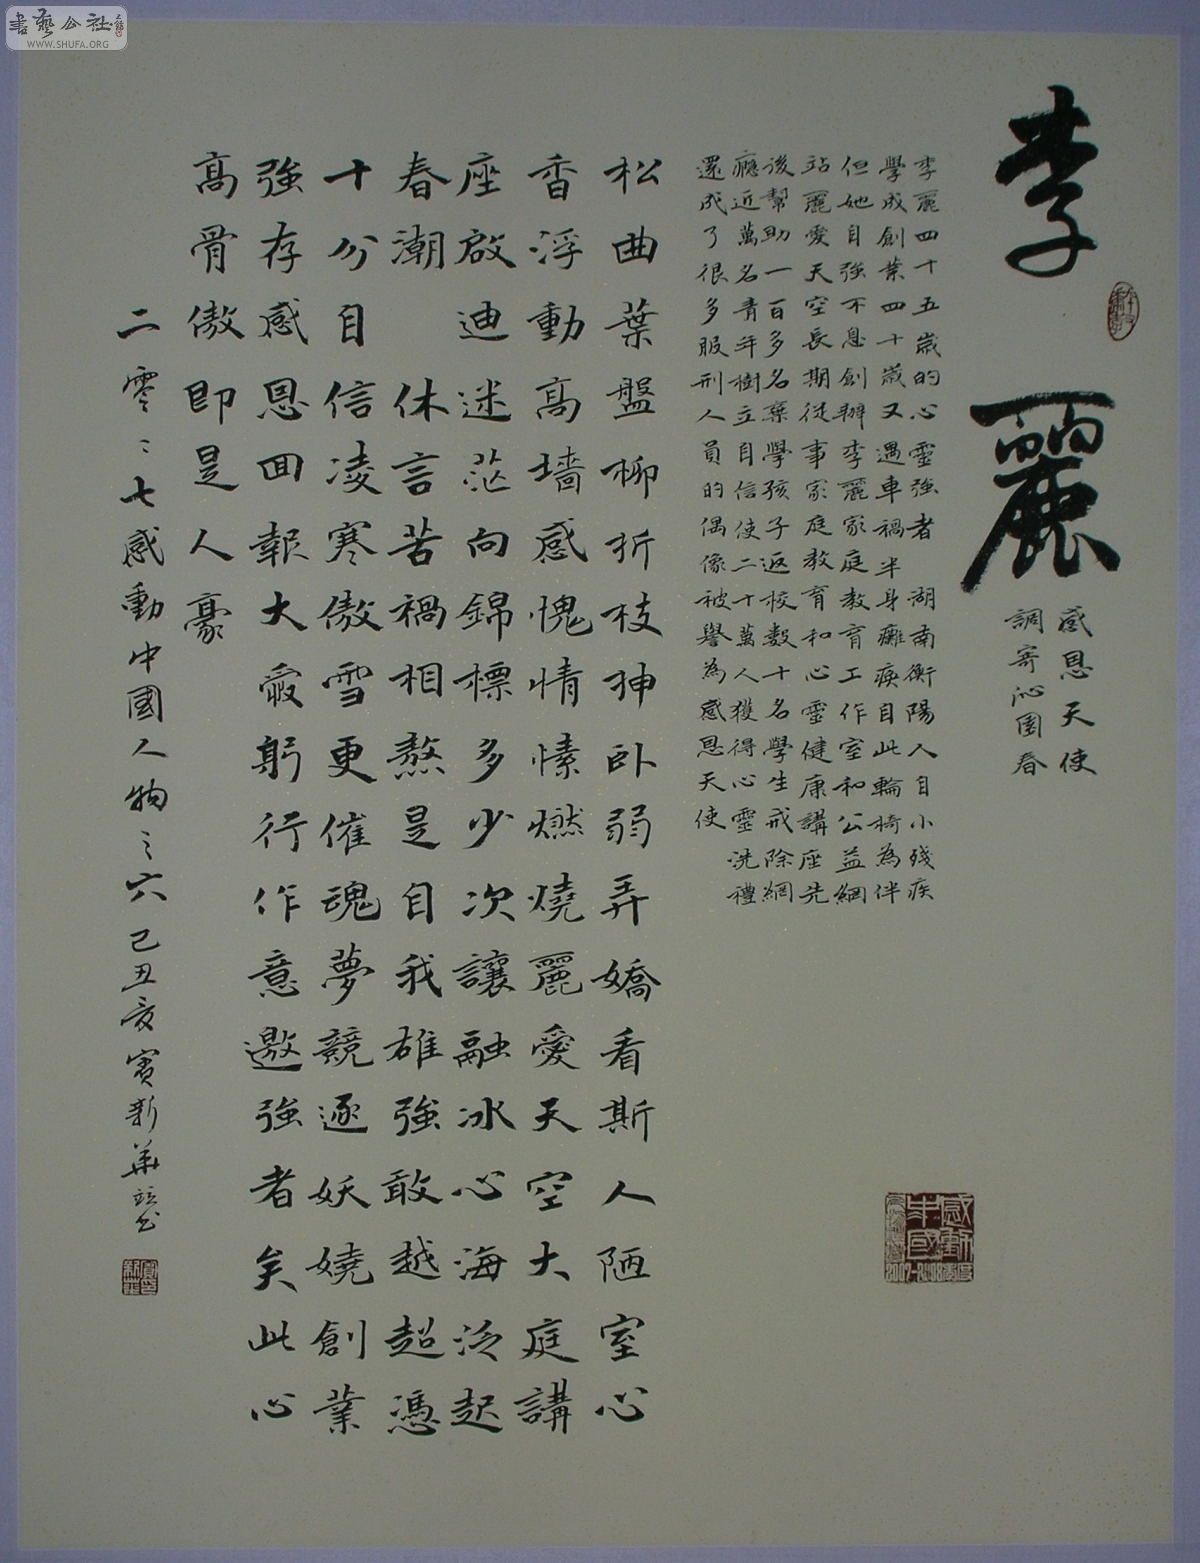 書藝公社
WWW.SHUFA.ORG
李麗
感恩天使
調寄沁園春
李麗四十五歲的心靈強者湖南衡陽人自小殘疾
學成創業四十歲又遇車禍半身癱瘓自此輪椅為伴
但她自強不息創辦李麗家庭教育工作室和公益網
站麗愛天空長期從事家庭教育和心靈健康講座先
後幫助一百多名棄學孩子返校數十名學生戒除網
癮近萬名青年樹立自信使二十萬人獲得心靈洗禮
還成了很多服刑人員的偶像被譽為感恩天使
松曲葉盤柳折枝抻臥弱弄嬌看斯人陋室心
香浮動高墻感愧情愫燃燒麗愛天空大庭講
座啟迪迷茫向錦標多少次讓融冰心海泛起
春潮 休言苦禍相熬是自我雄強敢越超憑
十分自信凌寒傲雪更催魂夢競逐妖嬈創業
強存感恩回報大愛躬行作意邀強者矣此心
高骨傲即是人豪
二零〻七感動中國人物之六己丑夏賓新華並書
感動中國